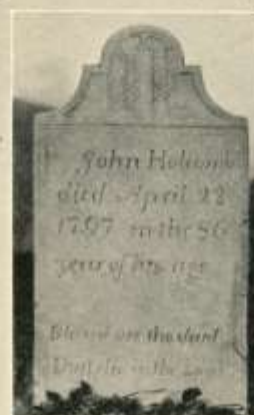 John Holcomb
died April 22
1797 in the 56
year of his age
Blessed are the dead
in the Lord